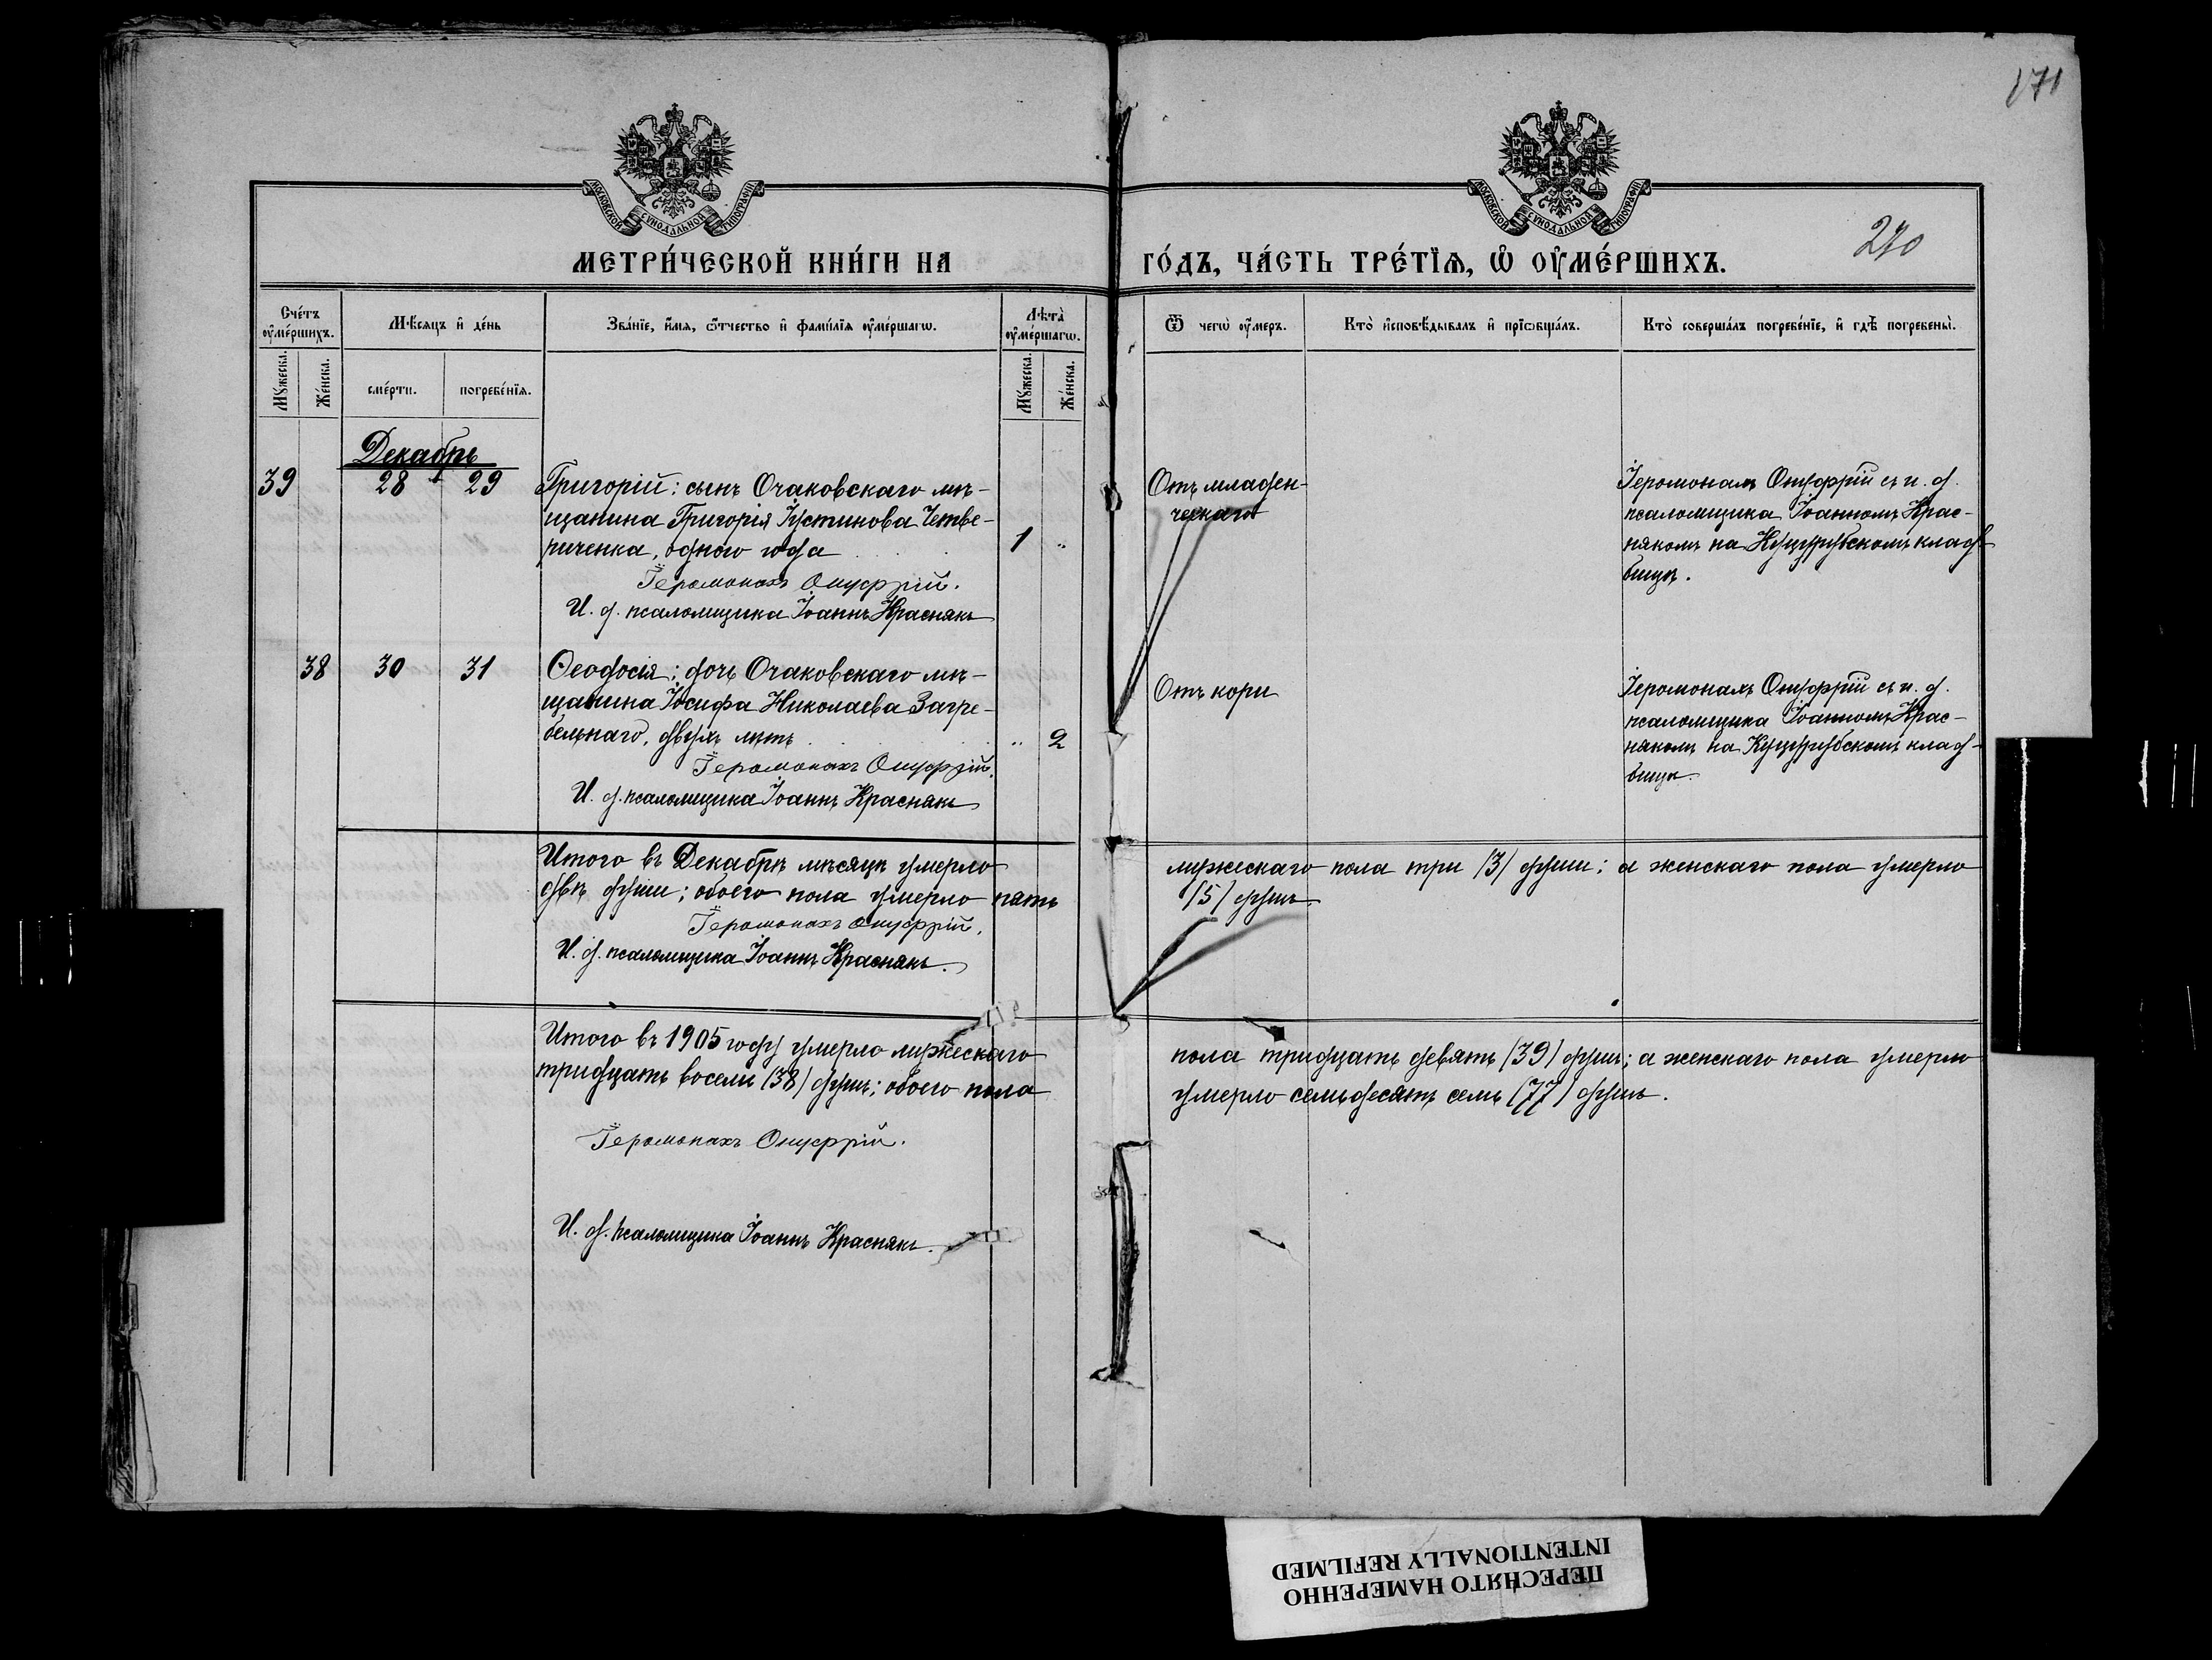 171
МОСКОВСКОЙ СѴНОДАЛЬНОЙ ТИПОГРАФІИ
МОСКОВСКОЙ СѴНОДАЛЬНОЙ ТИПОГРАФІИ
МЕТРИ́ЧЕСКОЙ КНИ́ГИ НА
ГО́ДЪ, ЧА́СТЬ ТРЕ́ТІѦ, Ѽ ОУ҆МЕ́РШИХЪ.
270
Сче́тъ оу҆ме́ршихъ.
Мꙋ́жеска.
Же́нска.
Мѣ́сяцъ и҆ де́нь
сме́рти.
погребе́нїѧ.
Зва́нїе, и҆́мѧ, ѻ҆́тчество и҆ фами́лїѧ оу҆ме́ршагѡ.
Лѣта̀ оу҆ме́ршагѡ.
Мꙋ́жеска.
Же́нска.
Ѿ чегѡ̀ оу҆́меръ.
Кто̀ и҆сповѣ́дывалъ и҆ прїѡбща́лъ.
Кто̀ соверша́лъ погребе́нїе, и҆ гдѣ̀ погребены̀.
Декабрь
39
28
29
Григорій: сынъ Очаковскаго мѣ-
щанина Григорія Іустинова Четве-
риченка, одного года
1
"
Іеромонахъ Онуфрій.
И. д. псаломщика Іоаннъ Краснякъ
Отъ младен-
ческаго
Іеромонахъ Онуфрій съ и. д.
псаломщика Іоанномъ Крас-
някомъ на Куцурубскомъ клад-
бищѣ.
38
30
31
Ѳеодосія: дочь Очаковскаго мѣ-
щанина Іосифа Николаева Загре-
бельнаго, двухъ лѣтъ
"
2
Іеромонахъ Онуфрій.
И. д. псаломщика Іоаннъ Краснякъ
Отъ кори
Іеромонахъ Онуфрій съ и. д.
псаломщика Іоанномъ Крас-
някомъ на Куцурубскомъ клад-
бищѣ.
Итого въ Декабрѣ мѣсяцѣ умерло мужескаго пола три /3/ души; а женскаго пола умерло
двѣ души; обоего пола умерло пять /5/ душъ.
Іеромонахъ Онуфрій.
И. д. псаломщика Іоаннъ Краснякъ.
Итого въ 1905 году умерло мужескаго пола тридцать девять (39) душъ; а женскаго пола умерло
тридцать восемь (38) душъ; обоего пола умерло семьдесятъ семь (77) душъ.
Іеромонахъ Онуфрій.
И. д. псаломщика Іоаннъ Краснякъ.
ПЕРЕСНЯТО НАМЕРЕННО
INTENTIONALLY REFILMED